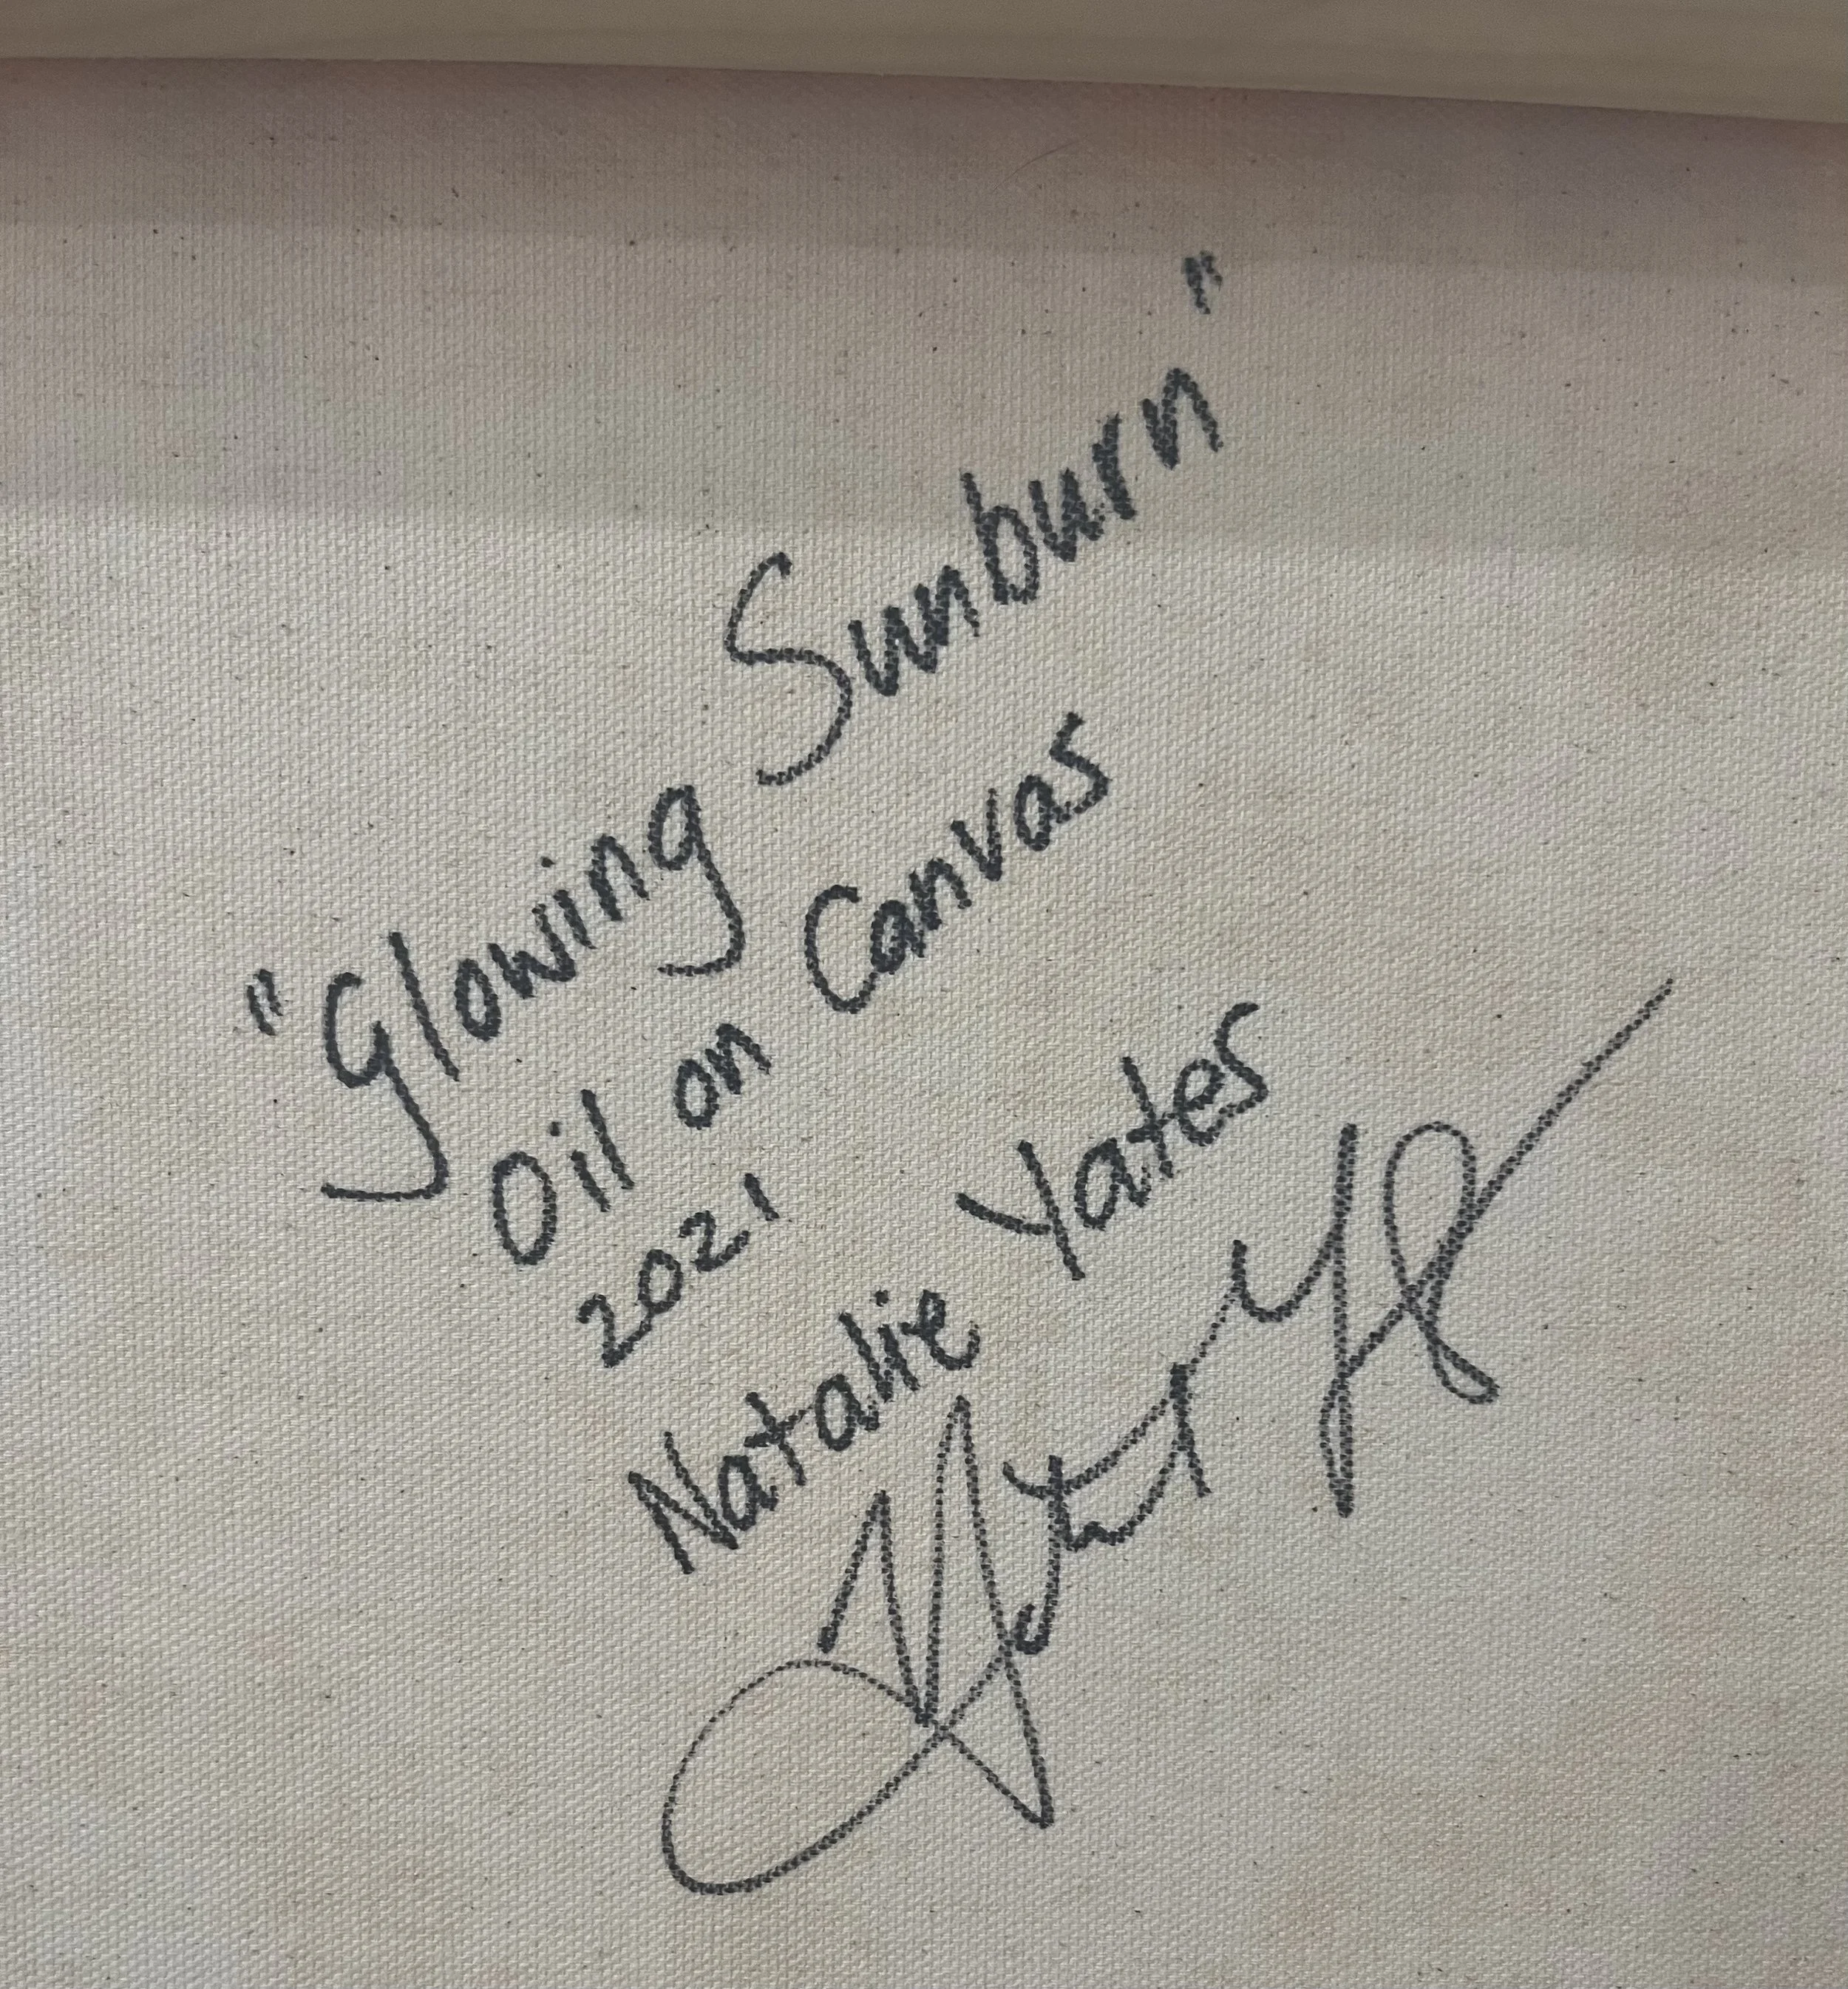 "Glowing Sunburn"
Oil on Canvas
2021
Natalie Yates